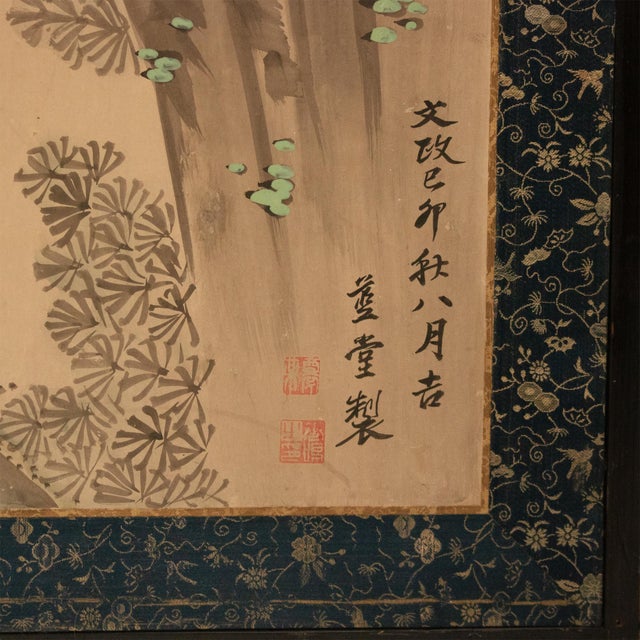 文政己卯秋八月吉
藍堂製